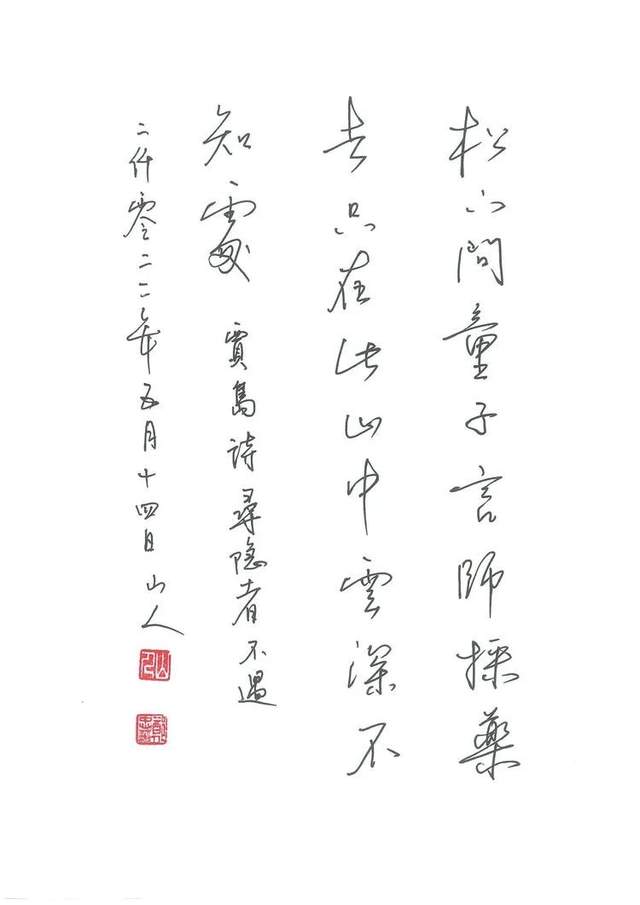 松下問童子言師採藥
去只在此山中雲深不
知處 賈島詩尋隐者不遇
二仟零二二年五月十四日山人
山人